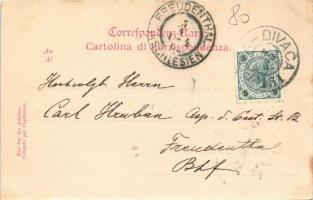 80
Correspondenz-Karte
Cartolina di corrispondenza.
FREUDENTHAL
SCHLESIEN
DIVAČA
An
Al
Hochwolgb Herrn
Carl Hruban Asp. d. Oest. St. B
in
a
Freudenthal
Bhf
Nur für die Adresse.